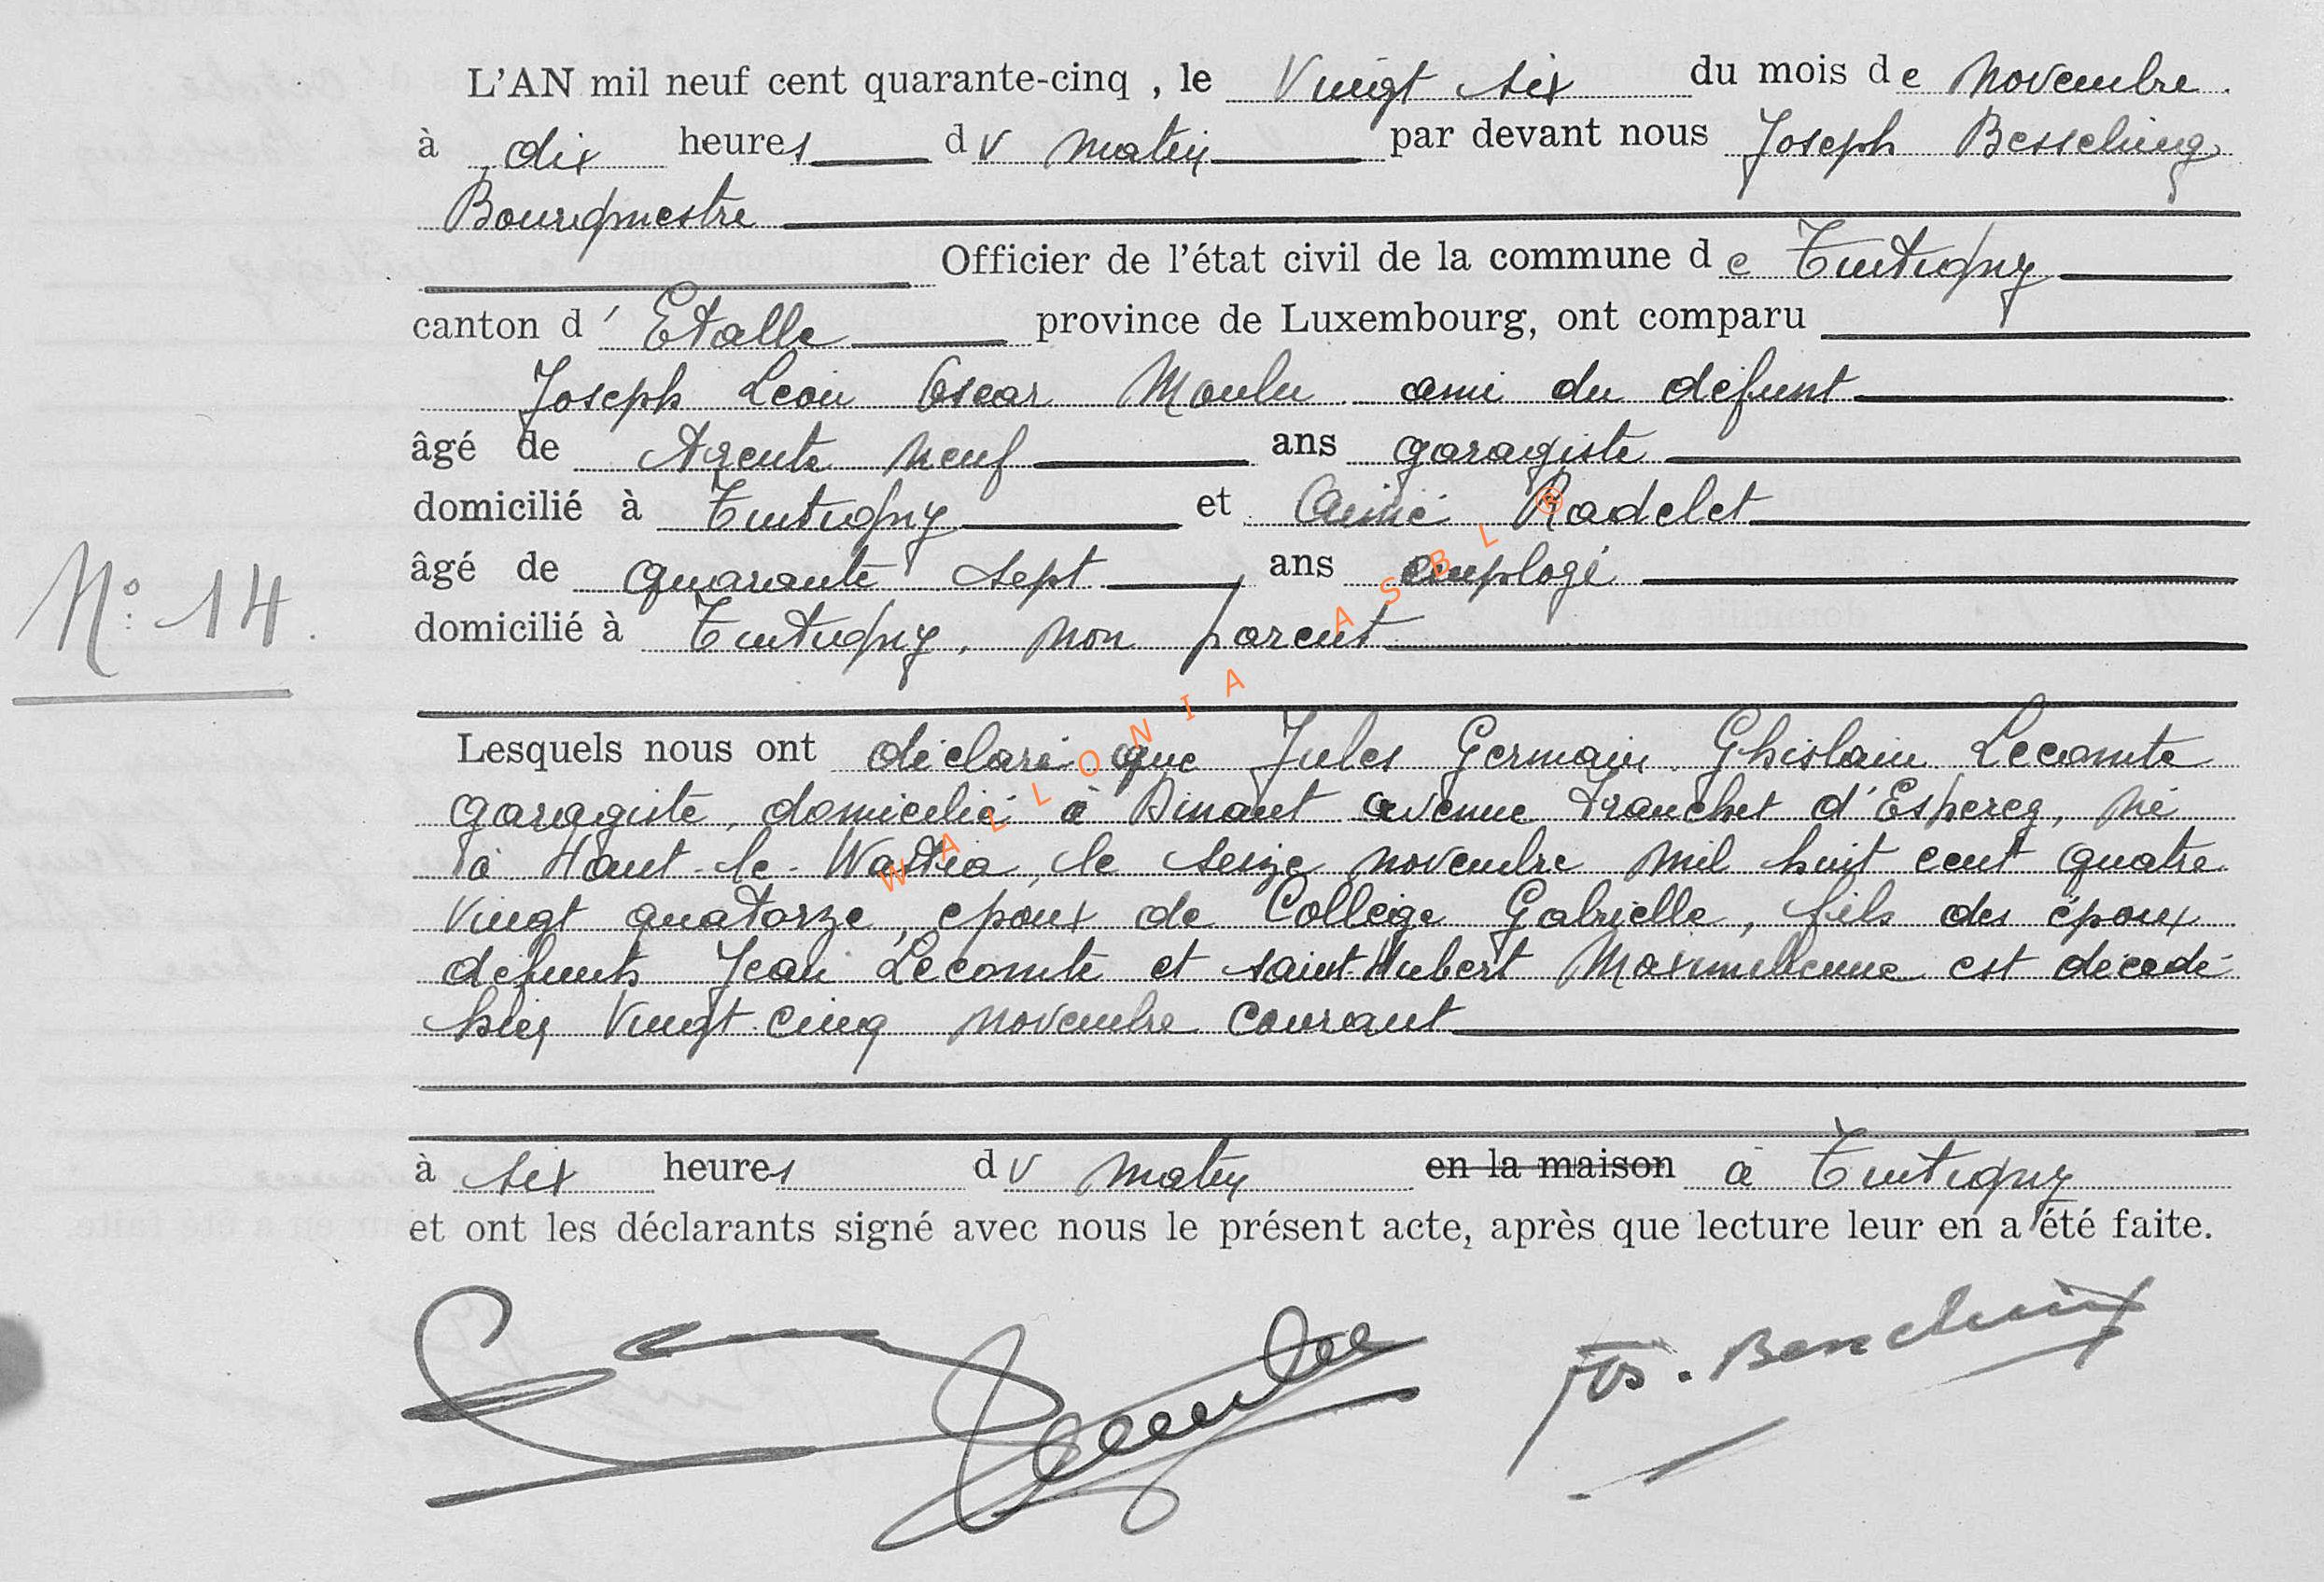 L'AN mil neuf cent quarante-cinq , le Vingt six du mois de Novembre.
à dix heures du matin par devant nous Joseph Bessching
Bourgmestre
Officier de l'état civil de la commune de Tintigny
canton d'Etalle province de Luxembourg, ont comparu
Joseph Léon Oscar Moulu ami du défunt
âgé de trente neuf ans garagiste
domicilié à Tintigny et Aimé Radelet
âgé de quarante sept ans employé
N° 14.
domicilié à Tintigny, non parent
Lesquels nous ont déclaré que Jules Germain Ghislain Lecomte
garagiste, domicilié à Dinant avenue Franchet d'Esperey, né
à Haut-le-Wastia, le seize novembre mil huit cent quatre
vingt quatorze, époux de Collège Gabrielle, fils des époux
défunts Jean Lecomte et saint-Hubert Maximilienne est décédé
hier Vingt cinq novembre courant
à six heures du matin en la maison à Tintigny
et ont les déclarants signé avec nous le présent acte, après que lecture leur en a été faite.
Jos. Bessching
WALLONIA ASBL ®